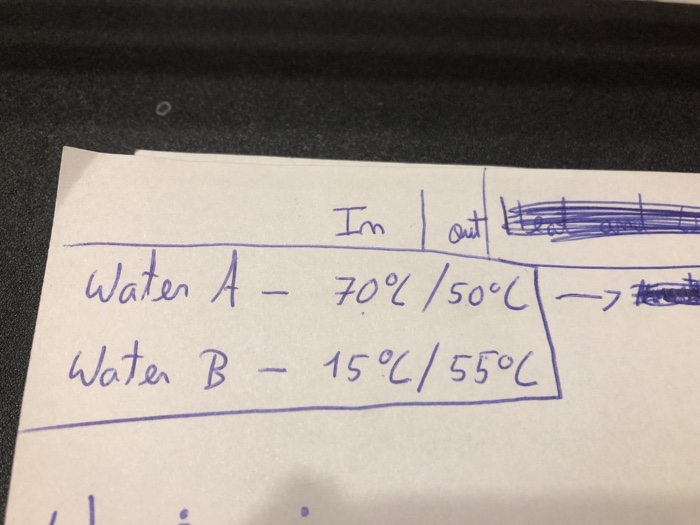 In | out
Water A - 70°C/50°C →
Water B - 15°C/55°C